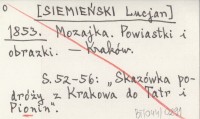 [SIEMIEŃSKI Lucjan]
1853. Mozajka. Powiastki i
obrazki. — Kraków.
S. 52-56: „Skazówka po-
dróży z Krakowa do Tatr i
Pionin".